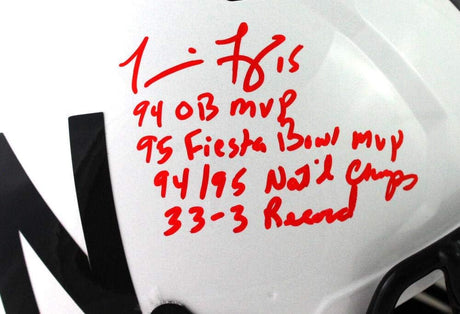 15
94 OB MVP
95 Fiesta Bowl MVP
94/95 Nat'l Champs
33-3 Record
N